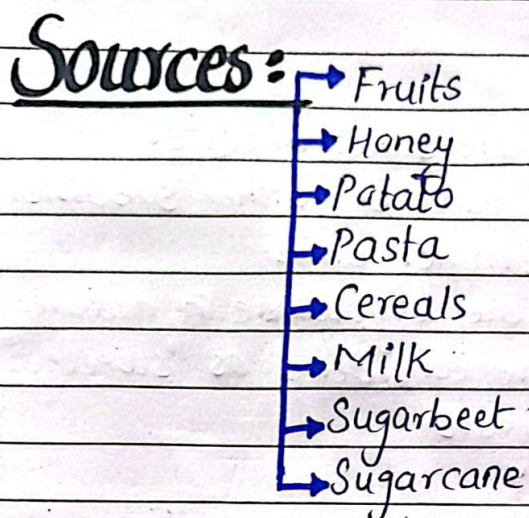 Sources:
Fruits
Honey
Patato
Pasta
Cereals
Milk
Sugarbeet
Sugarcane